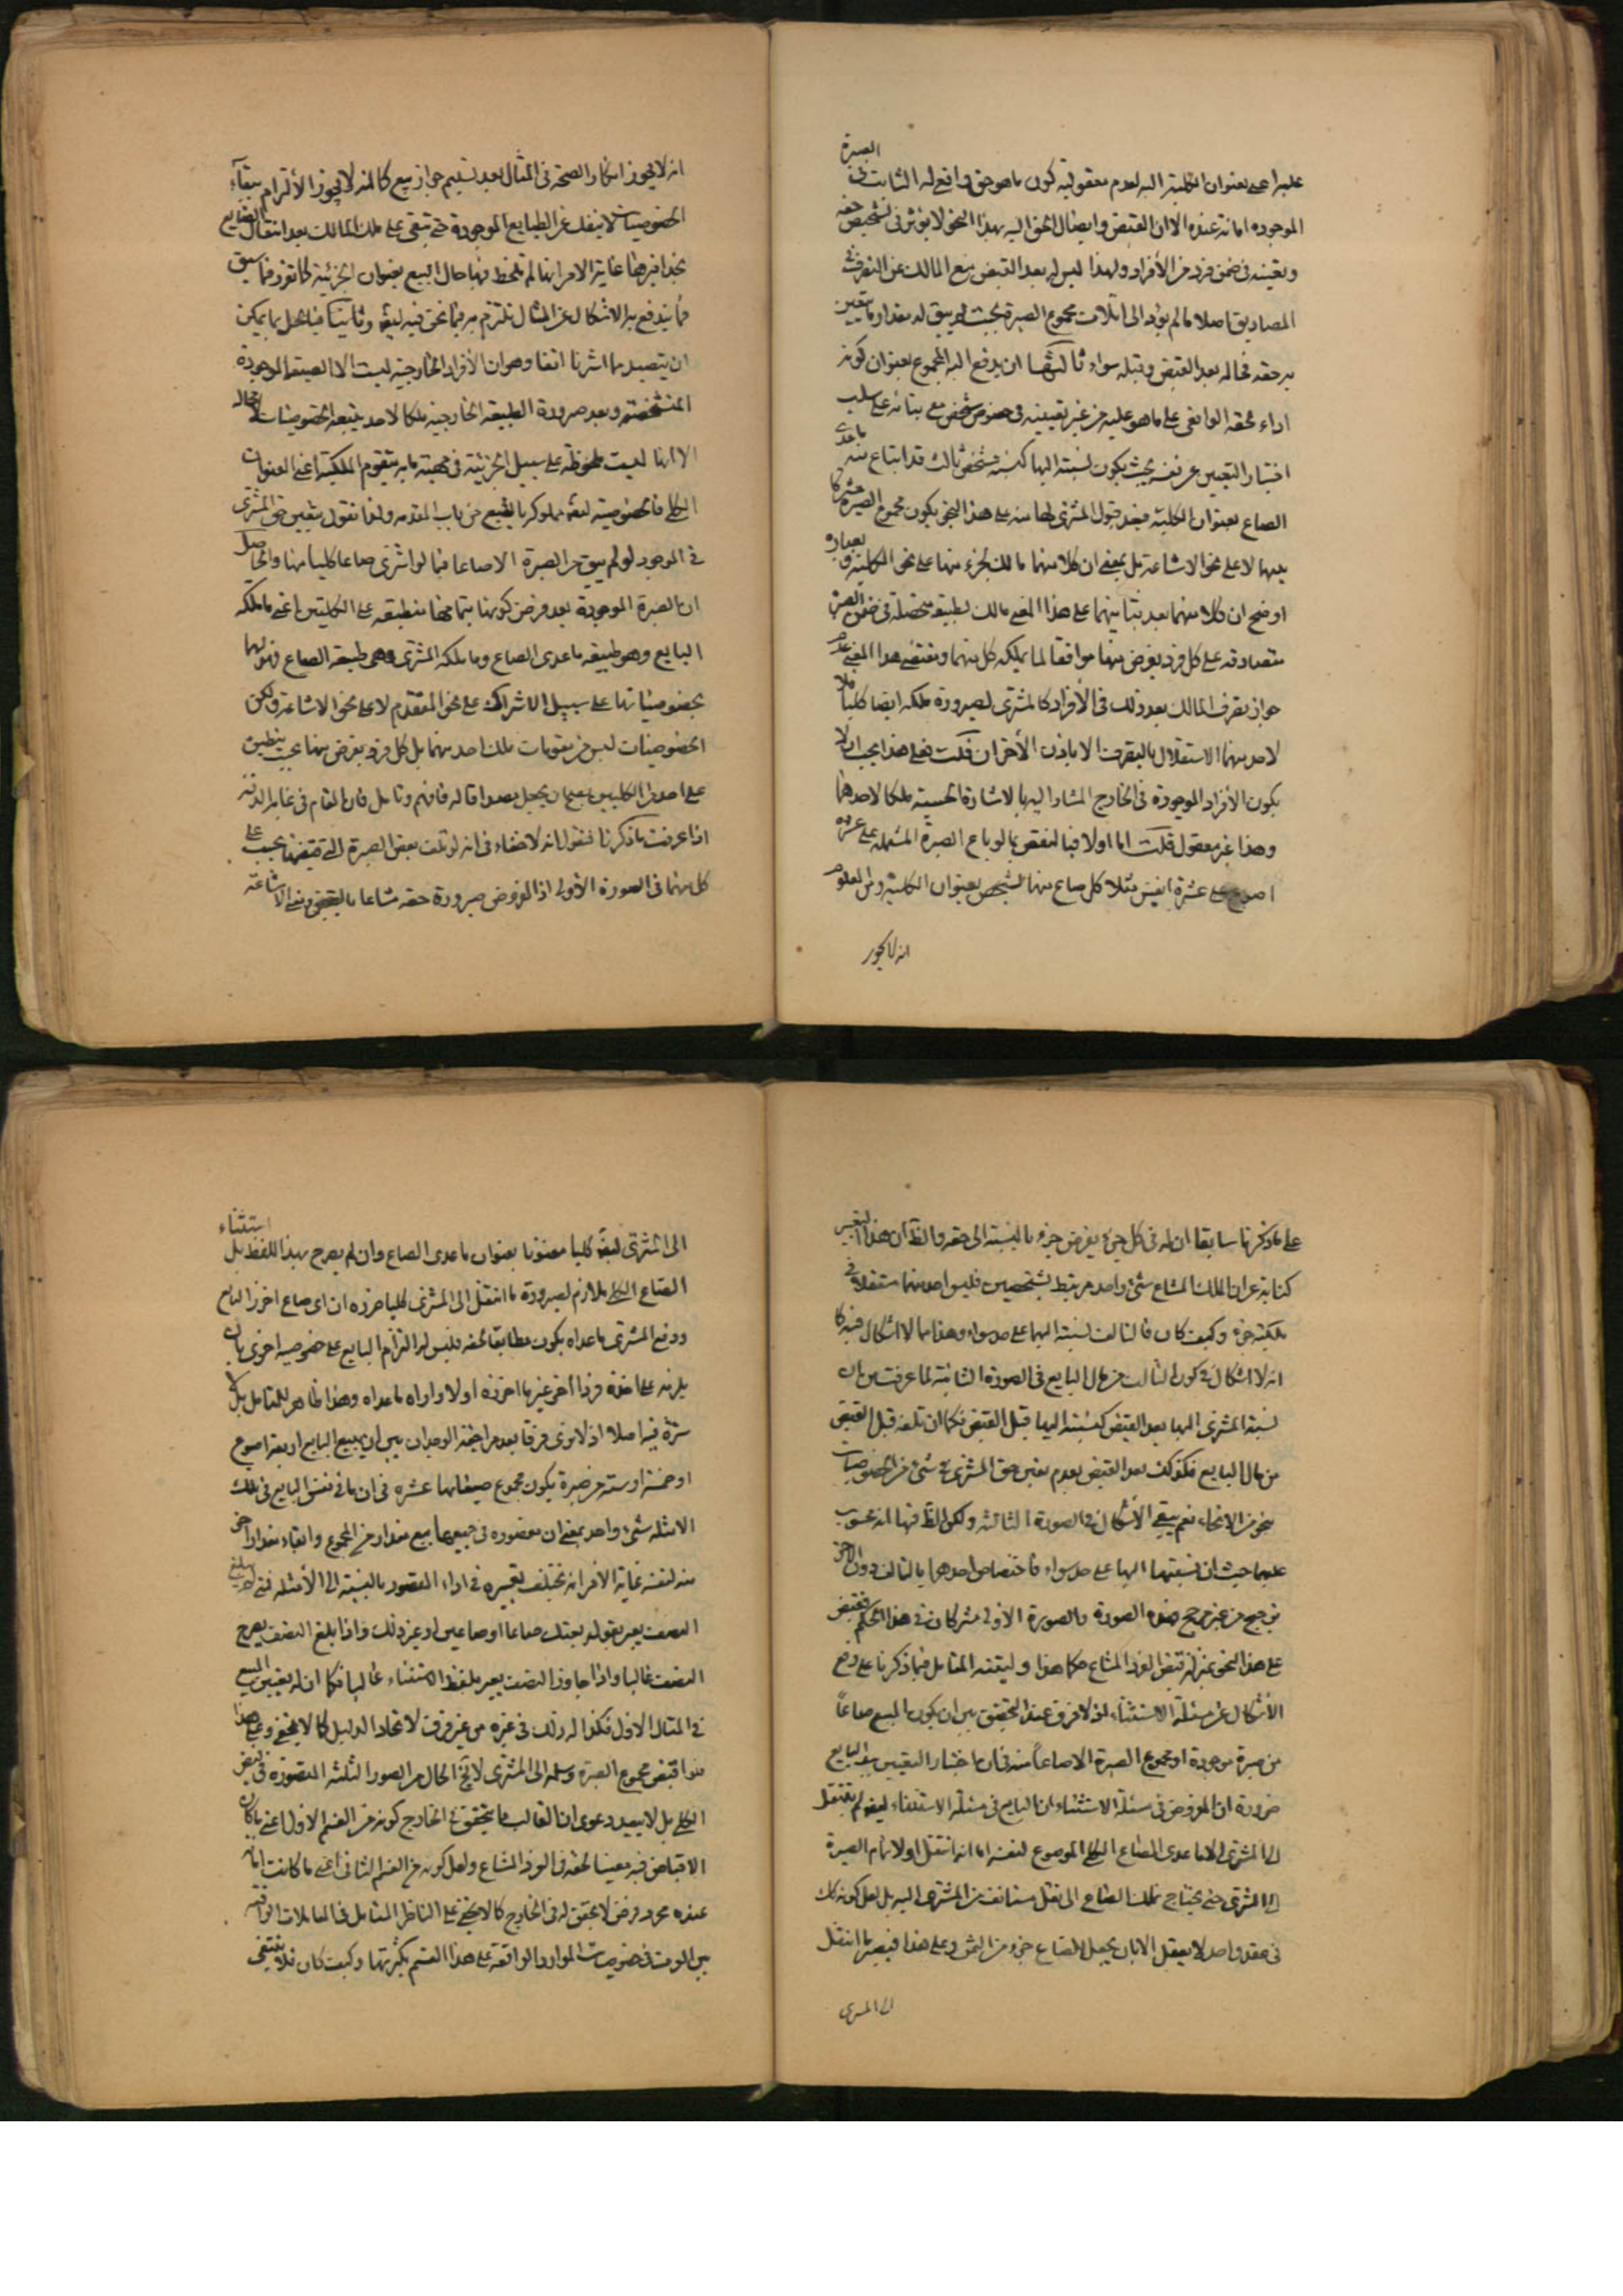 عليه اعني بعنوان الكلية اليه لعدم معقولية كون ما هو حق واقع له الثابت في الصبرة
الموجودة امانة عنده الا ان القبض وايصال الحق اليه بهذا النحو لا يؤثر في تشخيص حقه
وتعينه في ضمن فرد من الأفراد ولهذا ليس له بعد القبض منع المالك عن التصرف في
المصاديق اصلا ما لم يؤد الى اتلاف مجموع الصبرة بحيث لم يبق له مقدار ما يتعين
به حقه فحاله بعد القبض وقبله سواء ثالثها ان يدفع اليه المجموع بعنوان كونه
اداء لحقه الواقعي على ما هو عليه من غير تعيينه في خصوص شخص مع بنائه على سلب
اختيار التعيين عن نفسه بحيث يكون نسبته اليها كنسبة شخص ثالث قد ابتاع منه ما عدى
الصاع بعنوان الكلية فبعد قبول المشتري لها منه على هذا النحو يكون مجموع الصبرة مشتركا
بينهما لا على نحو الاشاعة بل بمعنى ان كلا منهما مالك لجزء منها على نحو الكلية وبعبارة
اوضح ان كلا منهما بعد بنائهما على هذا المعنى مالك لطبيعة متحصلة في ضمن الصبرة
متصادقة على كل فرد يفرض منها موافقا لما يملكه كل منهما ومقتضى هذا المعنى عدم
جواز تصرف المالك بعد ذلك في الأفراد كالمشتري لصيرورة ملكه ايضا كليا فلا
لاحد منهما الاستقلال بالتصرف الا باذن الأخر ان قلت فعلى هذا يجب ان لا
يكون الأفراد الموجودة في الخارج المشار اليها بالاشارة الحسية ملكا لاحدهما
وهذا غير معقول قلت اما اولا فبالنقض بما لو باع الصبرة المشتملة على عشرة
اصوع على عشرة انفس مثلا كل صاع منها لشخص بعنوان الكلية ومن المعلوم
انه لا يجوز
انه لا يجوز انكار الصحة في المثال بعد تسليم جواز بيع كما انه لا يجوز الألتزام ببقاء
الخصوصيات لا ينفك عن الطبايع الموجودة حتى تبقى على ملك المالك بعد انتقال الطبايع
بحذافيرها غاية الامر انها لم تلحظ فيها حال البيع بعنوان الجزئية كما تقرر فيما سبق
فما يندفع به الاشكال عن المثال نلتزم به فيما نحن فيه ايضا وثانيا فبالحل بما يمكن
ان يتصيد مما اشرنا انفا وهو ان الأفراد الخارجية ليست الا الطبيعة الموجودة
المتشخصة وبعد صيرورة الطبيعة الخارجية ملكا لاحد يتبعه الخصوصيات لا محالة
الا انها ليست ملحوظة على سبيل الجزئية في جهة ما به يتقوم الملكية اعني العنوان
الكلي فالخصوصية ايضا مملوكة بالتبع من باب المقدمة ولذا نقول بتعيين حق المشتري
في الموجود لو لم يبق من الصبرة الا صاعا فيما لو اشترى صاعا كليا منها والحاصل
ان الصبرة الموجودة بعد فرض كونها بتمامها منطبقة على الكليتين اعني ما ملكه
البايع وهو طبيعة ما عدى الصاع وما ملكه المشتري وهي طبيعة الصاع فهو لهما
بخصوصياتها على سبيل الاشتراك على نحو المتقدم لا على نحو الاشاعة ولكن
الخصوصيات ليس من مقومات ملك احد منهما بل كل فرد يفرض منها بحيث ينطبق
على احد الكليين يصح ان يجعل مصداقا له فافهم وتامل فان المقام في غاية الدقة
اذا عرفت ما ذكرنا فنقول انه لا خفاء في انه لو تلف بعض الصبرة التي قبضها يحسب على
كل منهما في الصورة الأولى اذ المفروض صيرورة حقه مشاعا بالقبض ومعنى الاشاعة
على ما ذكرنا سابقا ان له في كل جزء يفرض جزء بالنسبة الى حقه والظ ان هذا التعبير
كناية عن ان الملك المشاع شئ واحد مرتبط بشخصين فليس احد منهما مستقلا في
ملكية جزء وكيف كان فالتالف نسبته اليهما على حد سواء وهذا مما لا اشكال فيه كما
انه لا اشكال في كون التالف من مال البايع في الصورة الثانية لما عرفت من ان
نسبة المشتري اليها بعد القبض كنسبته اليها قبل القبض فكما ان تلفه قبل القبض
من مال البايع فكذلك بعد القبض لعدم تعين حق المشتري في شئ من الخصوصيات
بنحو من الانحاء نعم يبقى الأشكال في الصورة الثالثة ولكن الظ فيها انه محسوب
عليهما حيث ان نسبتهما اليها على حد سواء فاختصاص احدهما بالتالف دون الاخر
ترجيح من غير مرجح هذه الصورة والصورة الاولى مشتركان في هذا الحكم فقبض
على هذا النحو بمنزلة قبض الفرد المشاع حكما هذا وليقتنه المتامل فيما ذكرنا على دفع
الأشكال عن مسئلة الاستثناء اذ لا فرق عند التحقيق بين ان يكون المبيع صاعاً
من صبرة موجودة او مجموع الصبرة الا صاعاً منه في ان اختيار التعيين بيد البايع
ضرورة ان المفروض في مسئلة الاستثناء ان البايع في مسئلة الاستثناء ايضا لم ينتقل
الى المشتري الا ما عدى الصاع الكلي الموضوع لنفسه لا انه انتقل اولا تمام الصبرة
الى المشتري حتى يحتاج تملك الصاع الى نقل مستانف من المشتري اليه بل لعل كونه كك
في عقد واحد لا يعقل الا بان يجعل الصاع جزء من الثمن وعلى هذا فيصير ما انتقل
الى المشتري
الى المشتري ايضا كليا معنونا بعنوان ما عدى الصاع وان لم يصرح بهذا اللفظ بل استثناء
الصاع الكلي ملازم لصيرورة ما انتقل الى المشتري كليا ضرورة ان اى صاع افرز البايع
ودفع المشتري ما عداه يكون مطابقا لحقه فليس له الزام البايع على خصوصية اخرى بان
يلزمه على اخذ فرد اخر غير ما افرزه اولا واداه ما عداه وهذا ظاهر للمتامل بل لا
سترة فيه اصلا اذ لا نرى فرقا بعد مراجعة الوجدان بين ان يبيع البايع اربعة اصوع
او خمسة او ستة من صبرة يكون مجموع صيعانها عشرة في ان ما في نفس البايع في تلك
الامثلة شئ واحد بمعنى ان مقصوده في جميعها بيع مقدار من المجموع وابقاء مقدار اخر
منه لنفسه غاية الأمر انه يختلف تعبيره في اداء المقصود بالنسبة الى الأمثلة فمتى لم يبلغ
النصف يعبر بقوله بعتك صاعا او صاعين او غير ذلك واذا بلغ النصف يصرح
النصف غالبا واذا جاوز النصف يعبر بلفظ الاستثناء غالبا فكما ان له تعيين المبيع
في المثال الاول فكذا له ذلك في غيره من غير فرق لاتحاد الدليل كما لا يخفى وعلى هذا
فلو اقبض مجموع الصبرة وسلمه الى المشتري لا يخ الحال من الصور الثلثة المتصورة في قبض
الكلي بل لا يبعد دعوى ان الغالب مما يتحقق في الخارج كونه من القسم الاول اعني ما كان
الاقباض فيه معينا لحقه في الفرد المشاع ولعل كونه من القسم الثاني اعني ما كانت امانة
عنده مجرد فرض لا تحقق له في الخارج كما لا يخفى على الناظر المتامل في المعاملات الواقعة
بين الناس في خصوصيات الموارد الواقعة على هذا القسم بكثرتها وكيف كان فلا ينبغي